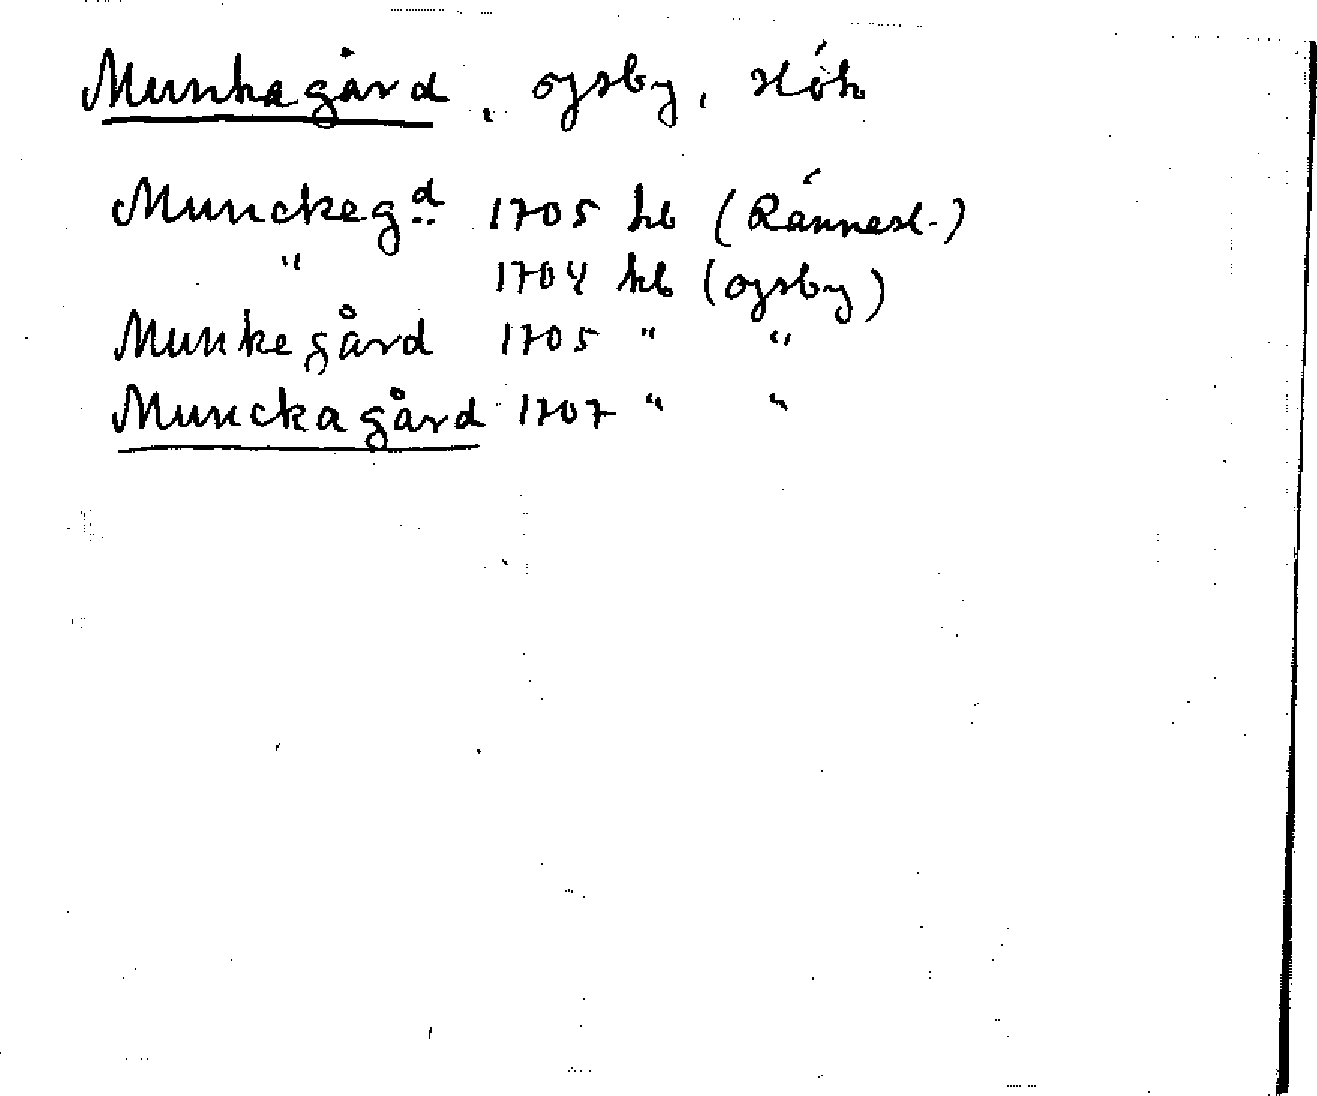 Munkagård, Oysby, Hök
Munckegd 1705 hb (Rännesl.)
" 1704 hb (Oysby)
Munkegård 1705 " "
Munckagård 1707 " "